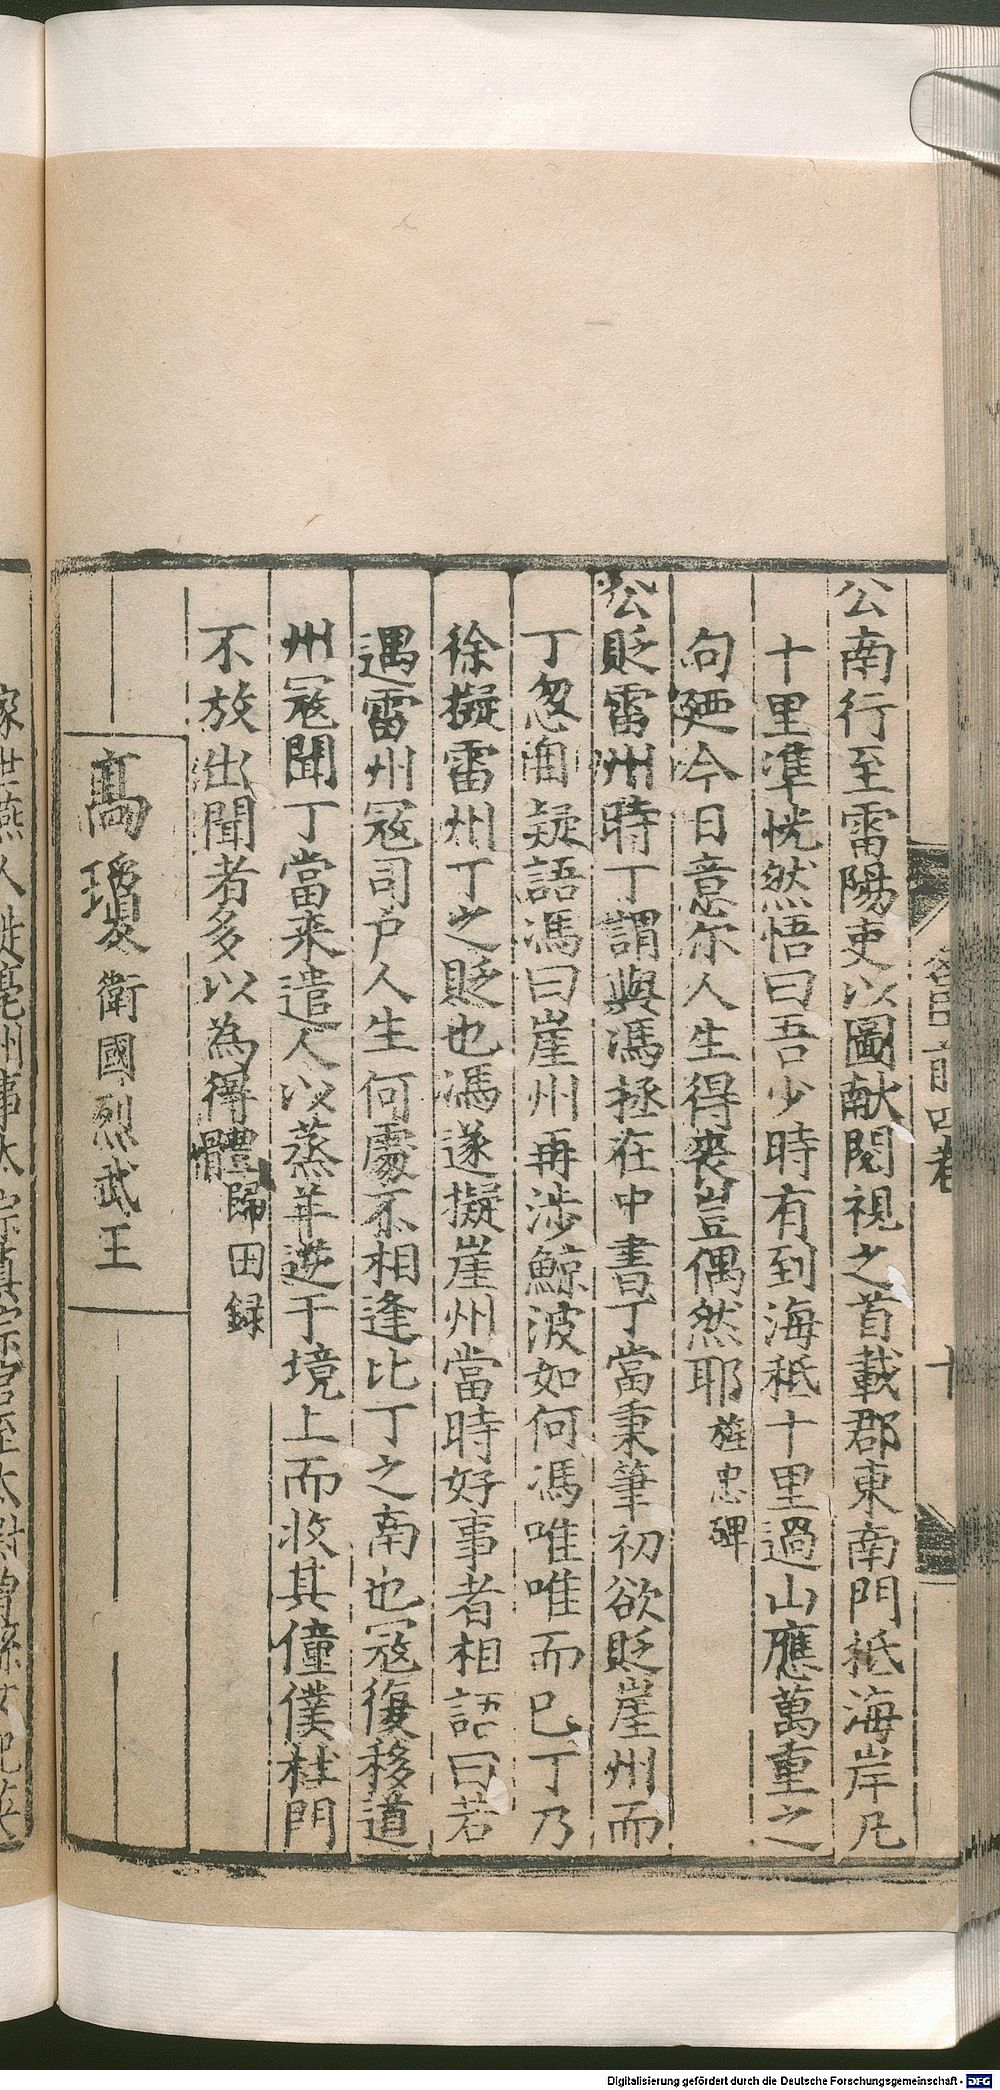 公南行至雷陽吏以圖献閱視之首載郡東南門抵海岸凡
十里準恍然悟曰吾少時有到海秪十里過山應萬重之
句廼今日意尔人生得丧豈偶然耶旌忠碑
公貶雷州時丁謂與馮拯在中書丁當秉筆初欲貶崖州而
丁忽自疑語馮曰崖州再涉鯨波如何馮唯唯而已丁乃
徐擬雷州丁之貶也馮遂擬崖州當時好事者相語曰若
遇雷州冦司户人生何處不相逢比丁之南也冦復移道
州冦聞丁當来遣人以蒸羊逆于境上而收其僮僕杜門
不放出聞者多以為得體歸田録
高瓊衛國烈武王
家世燕人徙亳州事太宗真宗官至太尉曾孫女
Digitalisierung gefördert durch die Deutsche Forschungsgemeinschaft - DFG